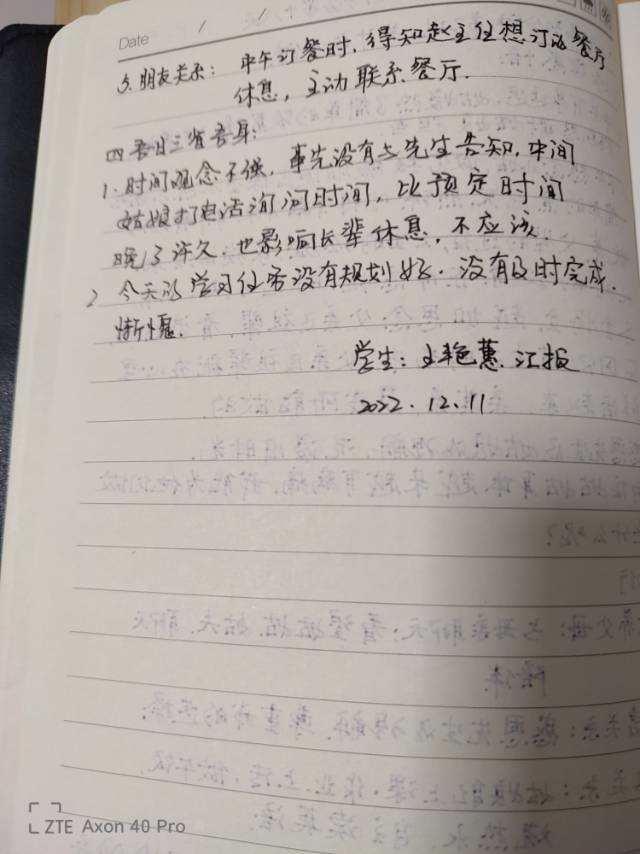 Date / /
5. 朋友关系: 中午订餐时, 得知赵主任想订的餐厅
休息, 主动联系餐厅.
四 吾日三省吾身:
1. 时间观念不强, 事先没有与先生告知, 中间
姑娘打电话询问时间, 比预定时间
晚了许久. 也影响长辈休息, 不应该.
2 今天的学习任务没有规划好. 没有及时完成.
惭愧.
学生: 王艳蕙. 汇报
2022. 12. 11
ZTE Axon 40 Pro